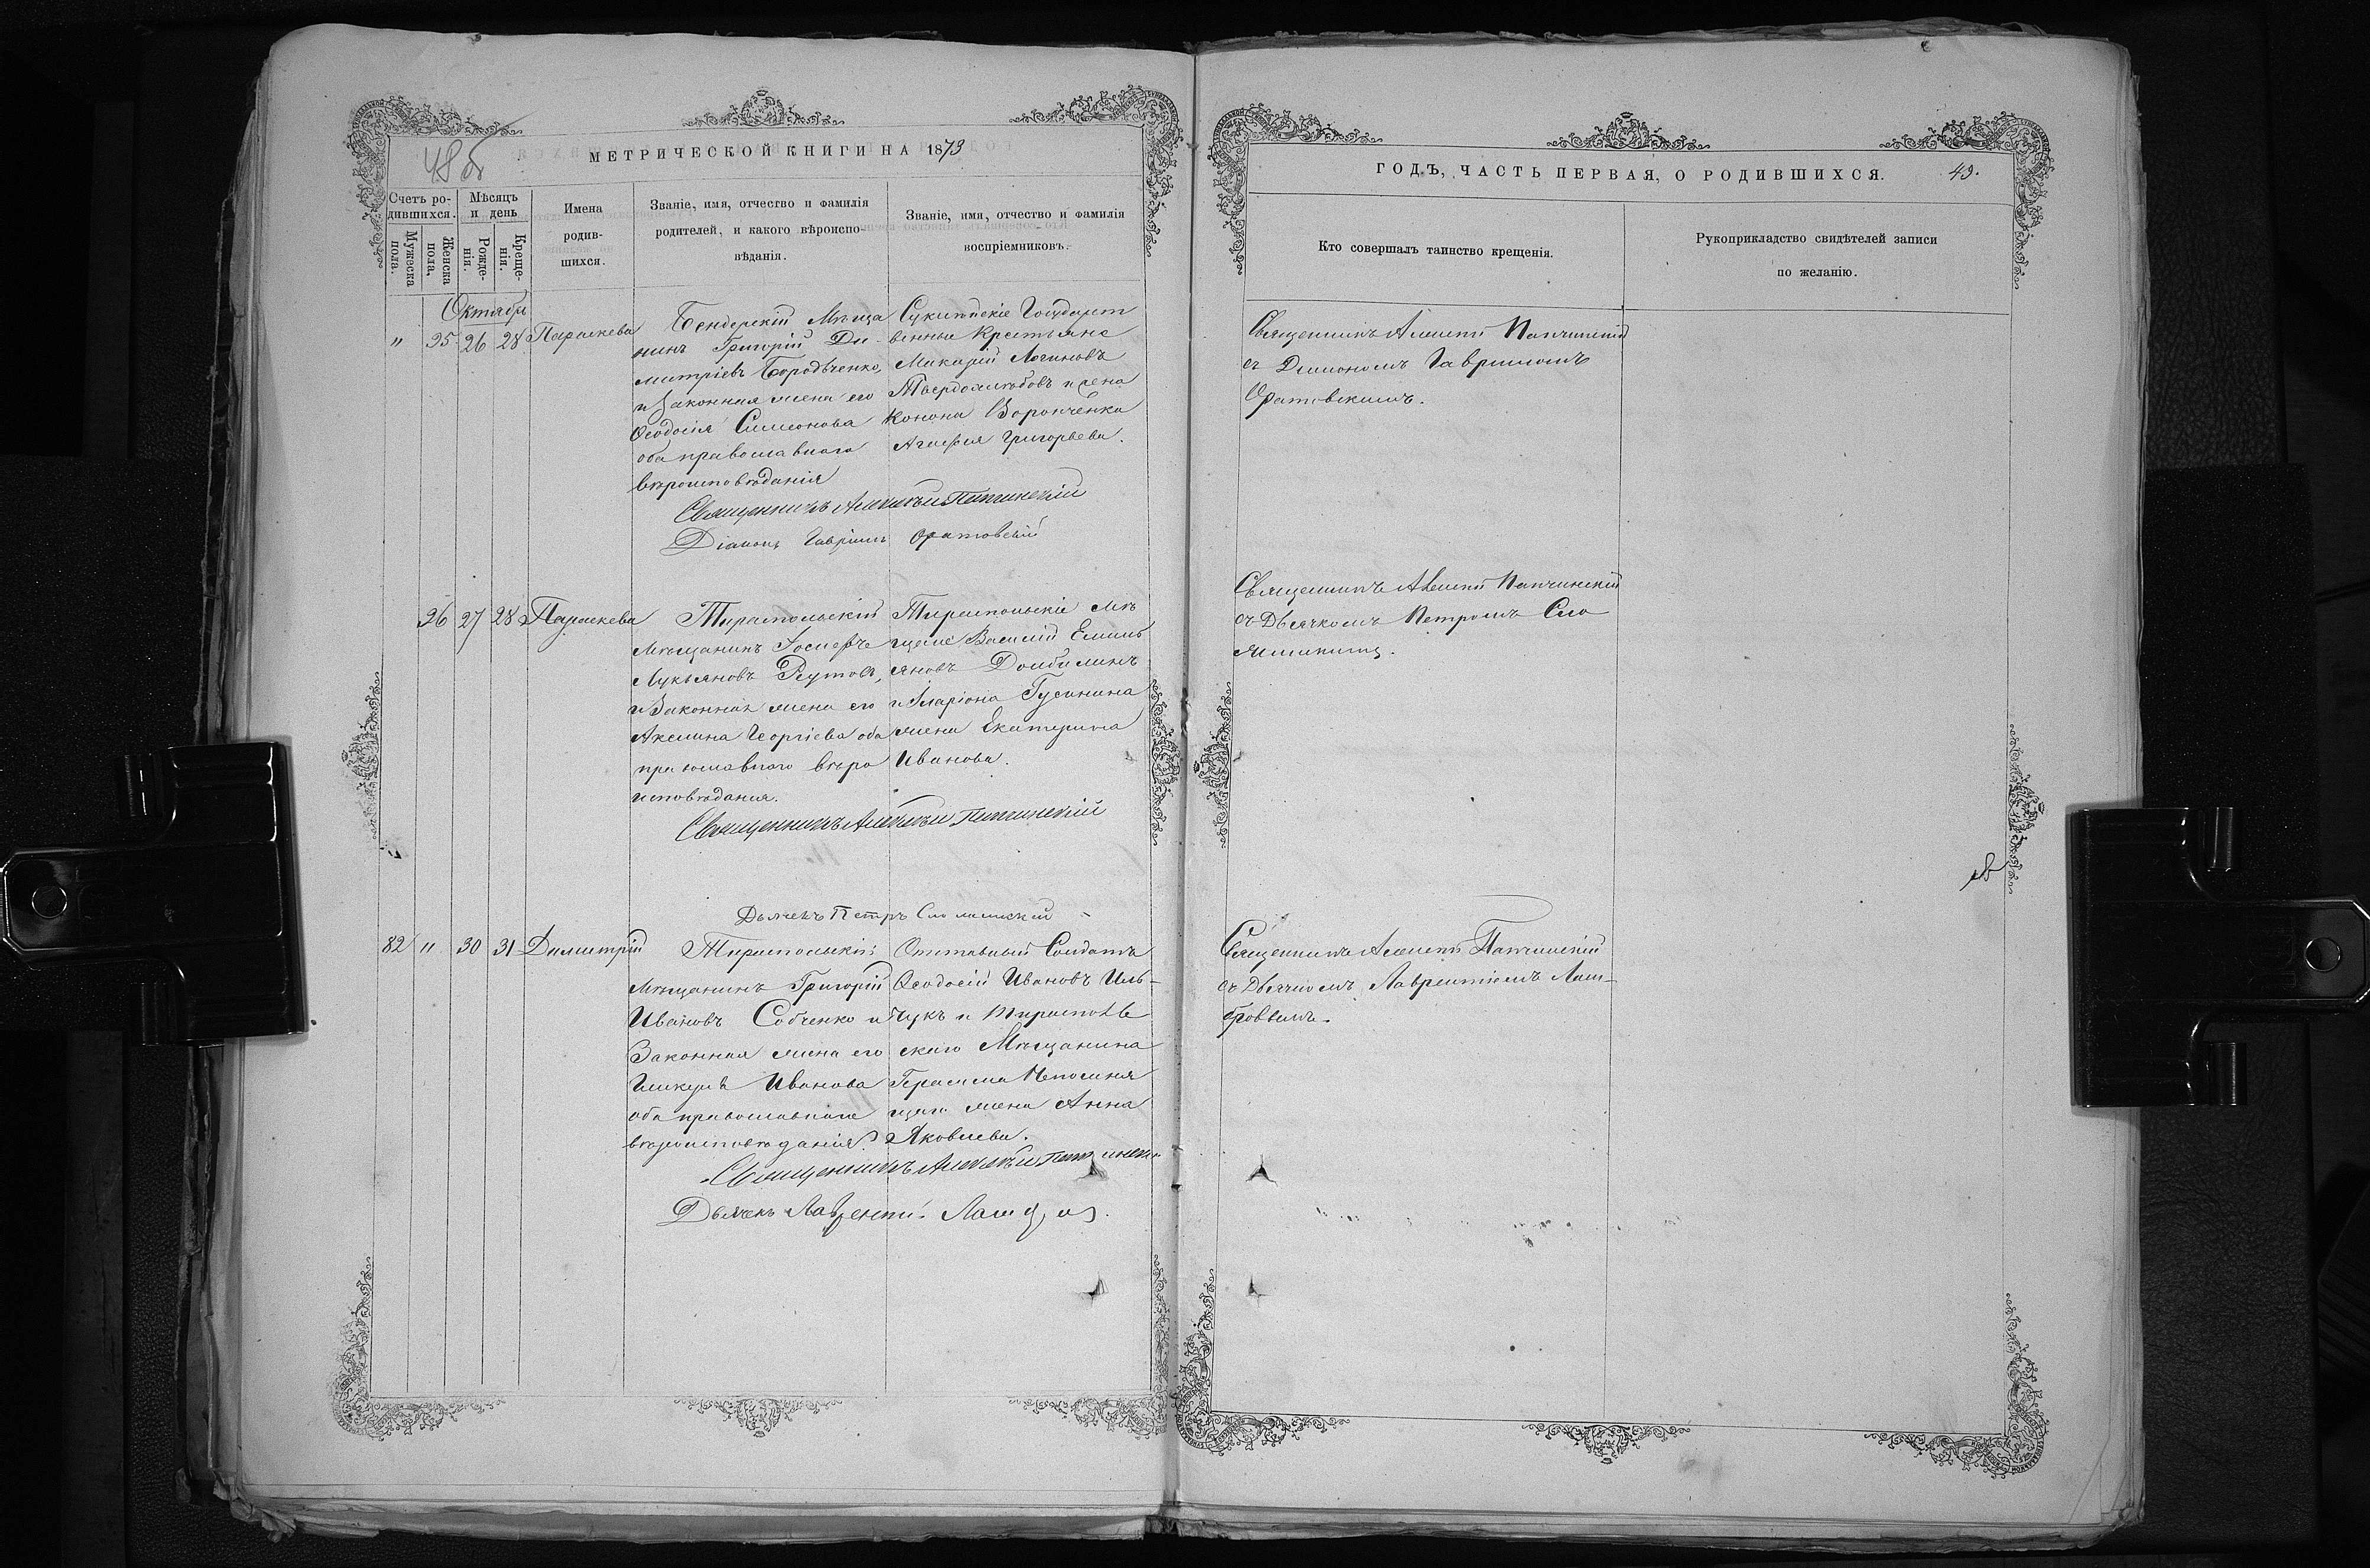 48 об
МЕТРИЧЕСКОЙ КНИГИ НА 1873
Счетъ родившихся.
Мужеска пола.
Женска пола.
Мѣсяцъ и день
Рожденія.
Крещенія.
Имена родившихся.
Званіе, имя, отчество и фамилія родителей, и какого вѣроисповѣданія.
Званіе, имя, отчество и фамилія воспріемниковъ.
Октябрь
" 95 26 28 Параскева
Бендерскій Мѣща
нинъ Григорій Ди-
митріевъ Бородѣченко,
и Законная жена его
Ѳеодосія Симеонова
оба православнаго
вѣроисповѣданія
Государст
венные Крестьяне
Макарій Логиновъ
Твердохлѣбовъ и жена
Конона Воронченка
Агафія Григорьева.
Священникъ Алексѣй Папчинскій
Діаконъ Гавріилъ Оратовскій
96 27 28 Параскева
Тираспольскій
Мѣщанинъ Іосифъ
Лукьяновъ Реутовъ,
и Законная жена его
Акилина Георгіева оба
православнаго вѣро
исповѣданія.
Тираспольскіе мѣ
щане Василій Емиль
яновъ
и Иларіона Гусинина
жена Екатерина
Иванова.
Священникъ Алексѣй Папчинскій
Дьячекъ Петръ
82 " 30 31 Димитрій
Тираспольскій
Мѣщанинъ Григорій
Ивановъ Собченко и
Законная жена его
Гликерія Иванова
оба православнаго
вѣроисповѣданія
Отставный Солдатъ
Ѳеодосій Ивановъ Иль-
чукъ и Тирасполь
скаго Мѣщанина
Герасима Непомня
щаго жена Анна
Яковлева.
Священникъ Алексѣй Папчинскій
Дьячекъ Лаврентій
ГОДЪ, ЧАСТЬ ПЕРВАЯ, О РОДИВШИХСЯ. 49.
Кто совершалъ таинство крещенія.
Рукоприкладство свидѣтелей записи по желанію.
Священникъ Алексѣй Папчинскій
съ Діакономъ Гавріиломъ
Оратовскимъ.
Священникъ Алексѣй Папчинскій
съ Дьячкомъ Петромъ
Священникъ Алексѣй Папчинскій
съ Дьячкомъ Лаврентіемъ